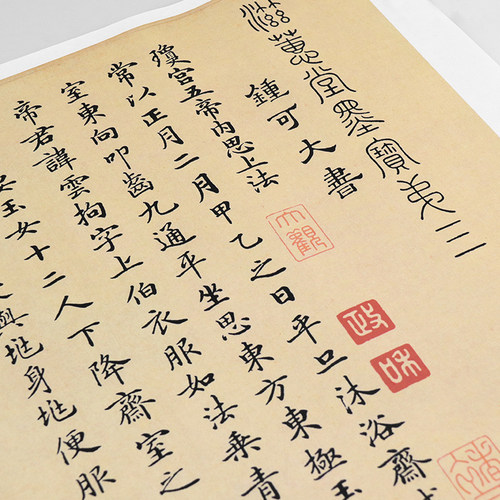 滋蕙堂墨寶弟三
鍾可大書
大觀
政
和
瓊宮五帝內思上法
常以正月二月甲乙之日平旦沐浴齋
室東向叩齒九通平坐思東方東極玉
帝君諱雲拘字上伯衣服如法乘青
玉女十二人下降齋室之
與垗身垗便服